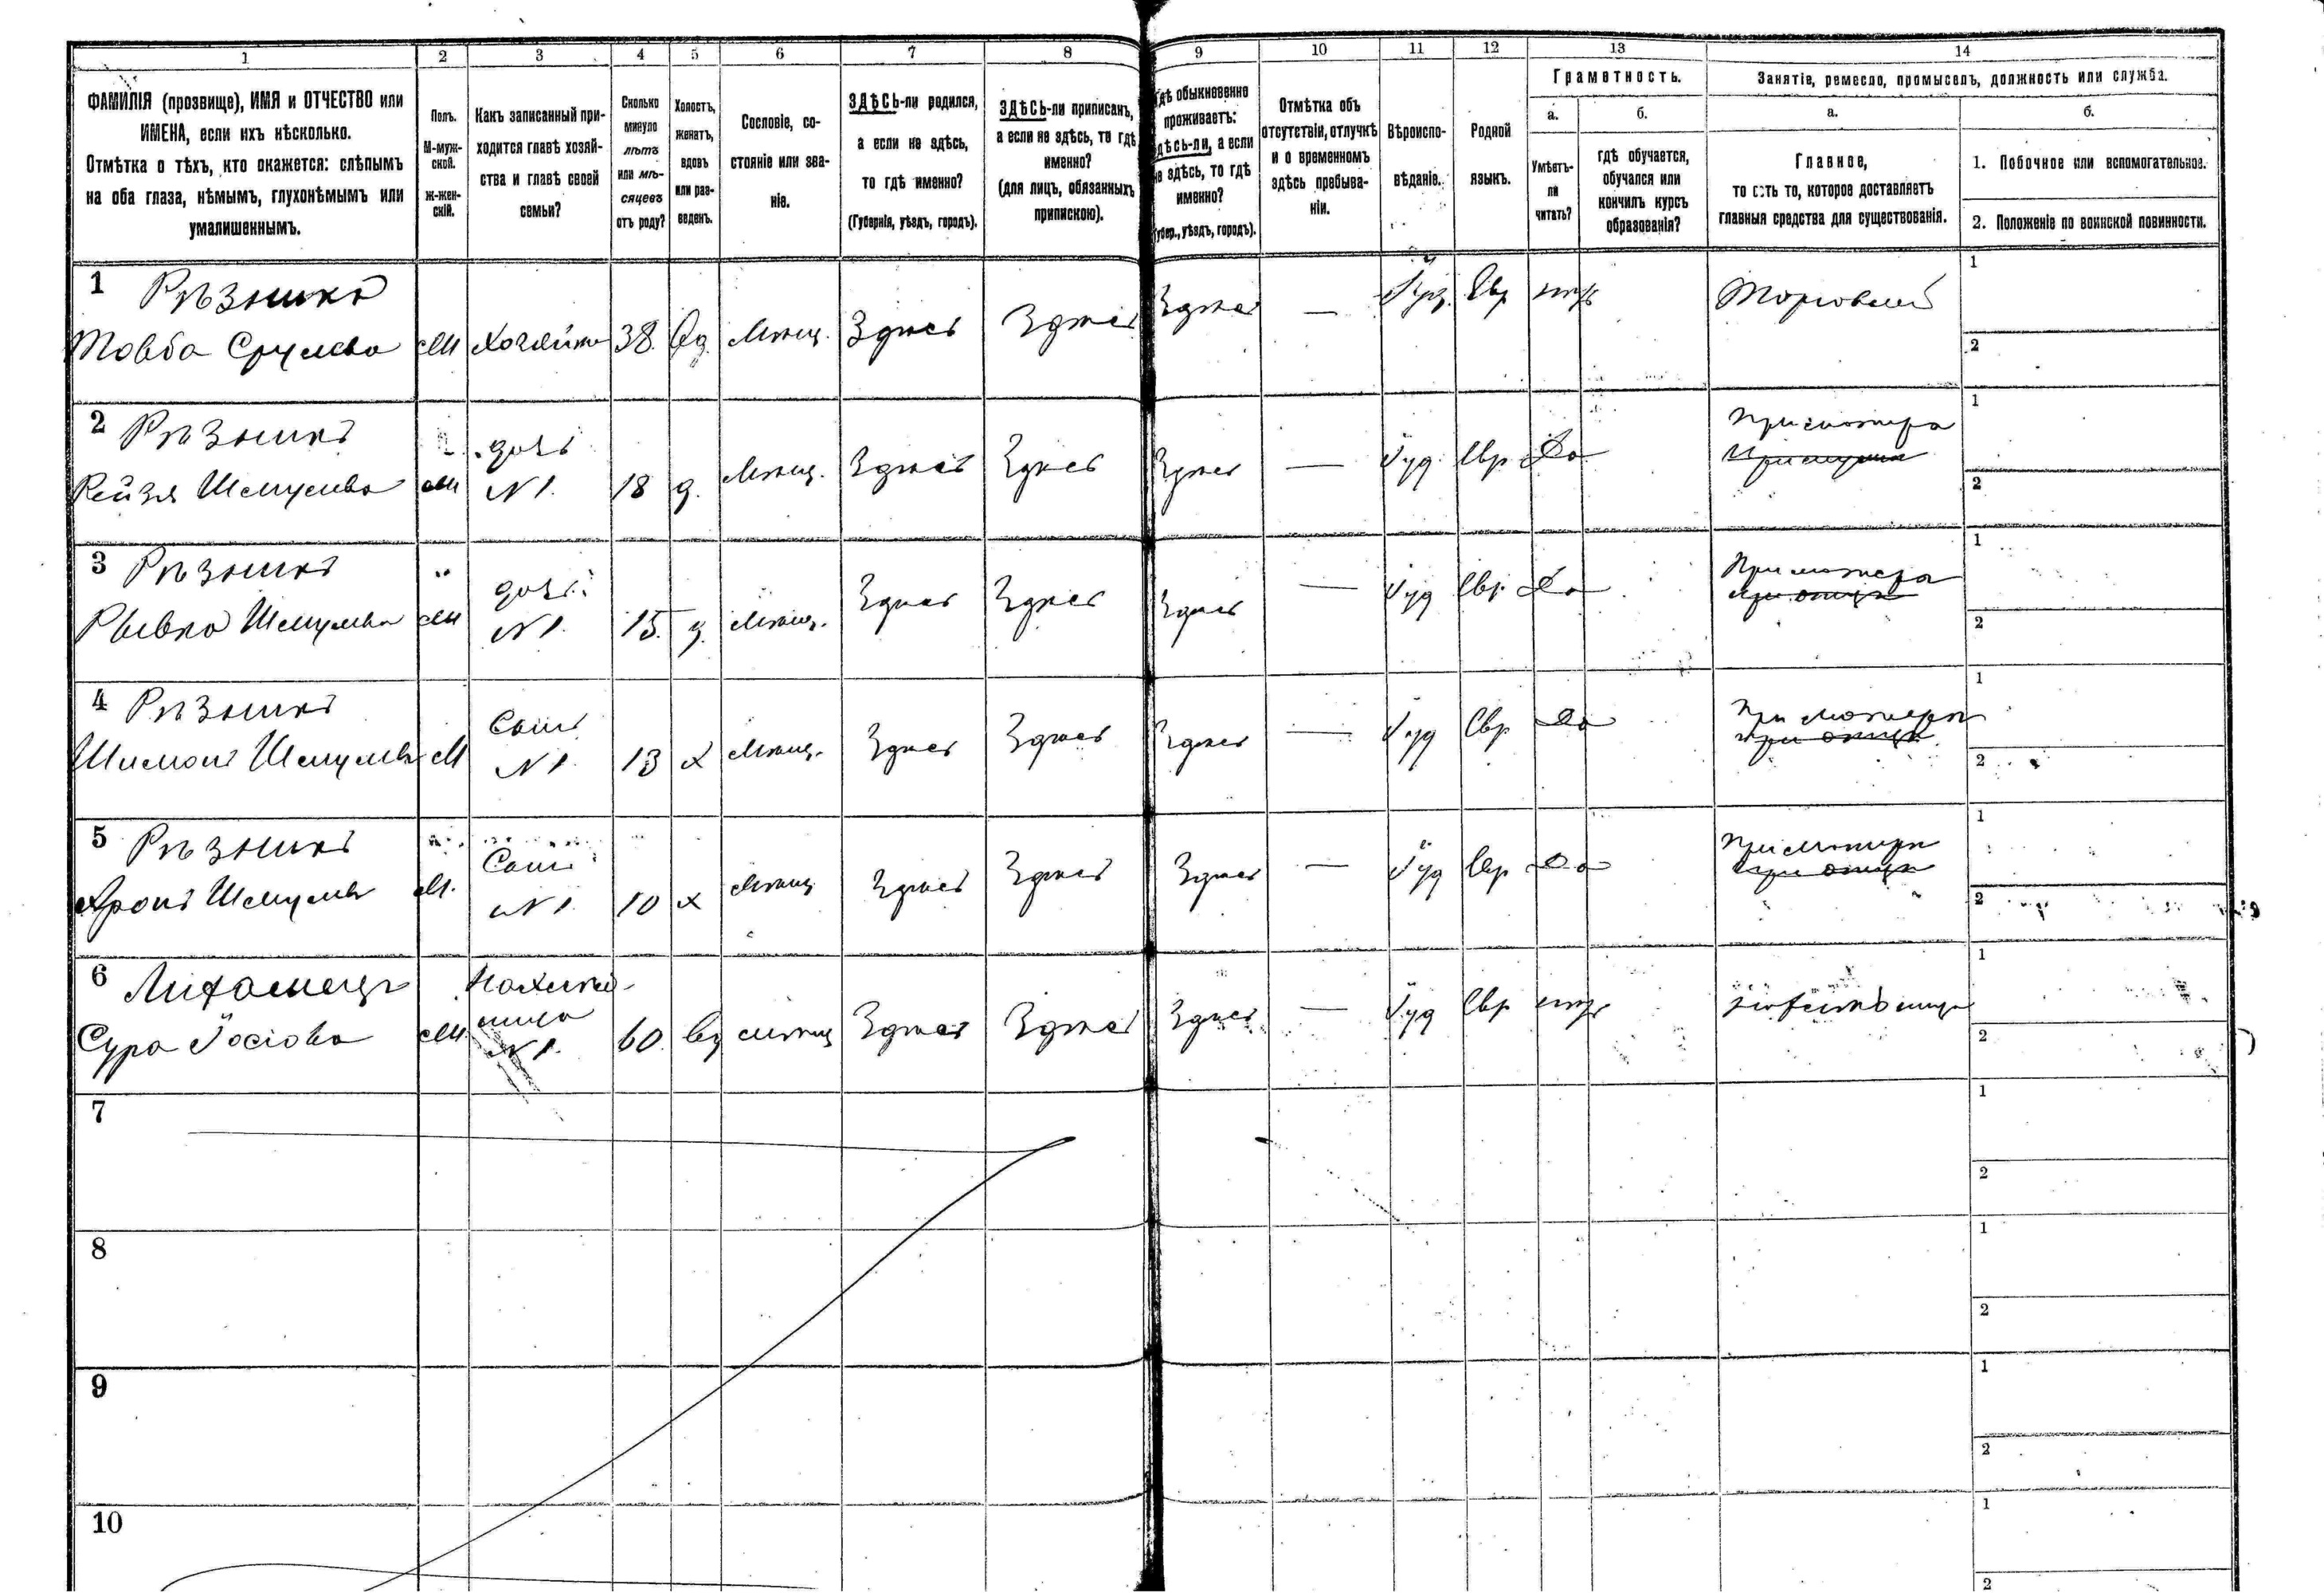 1 2 3 4 5 6 7 8 9 10 11 12 13 14
ФАМИЛІЯ (прозвище), ИМЯ и ОТЧЕСТВО или
ИМЕНА, если ихъ нѣсколько.
Отмѣтка о тѣхъ, кто окажется: слѣпымъ
на оба глаза, нѣмымъ, глухонѣмымъ или
умалишеннымъ.
Полъ.
М-муж-
ской.
ж-жен-
скій.
Какъ записанный при-
ходится главѣ хозяй-
ства и главѣ своей
семьи?
Сколько
минуло
лѣтъ
или мѣ-
сяцевъ
отъ роду?
Холостъ,
женатъ,
вдовъ
или раз-
веденъ.
Сословіе, со-
стояніе или зва-
ніе.
ЗДѢСЬ-ли родился,
а если не здѣсь,
то гдѣ именно?
(Губернія, уѣздъ, городъ).
ЗДѢСЬ-ли приписанъ,
а если не здѣсь, то гдѣ
именно?
(для лицъ, обязанныхъ
припискою).
гдѣ обыкновенно
проживаетъ:
здѣсь-ли, а если
не здѣсь, то гдѣ
именно?
(губер., уѣздъ, городъ).
Отмѣтка объ
отсутствіи, отлучкѣ
и о временномъ
здѣсь пребыва-
ніи.
Вѣроиспо-
вѣданіе.
Родной
языкъ.
Грамотность.
а.
Умѣетъ-
ли
читать?
б.
гдѣ обучается,
обучался или
кончилъ курсъ
образованія?
Занятіе, ремесло, промыселъ, должность или служба.
а.
Главное,
то есть то, которое доставляетъ
главныя средства для существованія.
б.
1. Побочное или вспомогательное.
2. Положеніе по воинской повинности.
1 Рѣзникъ
Товба Срулева Хозяйка 38. Вд. Мѣщ. Здѣсь Здѣсь Здѣсь — Іуд. Евр нѣтъ Торговля
1
2
2 Рѣзникъ
Рейзя Шмулева дочь N 1. 18 д. Мѣщ. Здѣсь Здѣсь Здѣсь — Іуд Евр Да При матери
1
2
3 Рѣзникъ
Рывка Шмулева дочь N 1. 15. д. Мѣщ. Здѣсь Здѣсь Здѣсь — Іуд Евр Да При матери
при отцѣ
1
2
4 Рѣзникъ
Шимонъ Шмулевъ М Сынъ N 1. 13 х Мѣщ. Здѣсь Здѣсь Здѣсь — Іуд Евр Да При матери
при отцѣ
1
2
5 Рѣзникъ
Аронъ Шмулевъ М. Сынъ N 1. 10 х Мѣщ Здѣсь Здѣсь Здѣсь — Іуд Евр Да При матери
при отцѣ
1
2
6
Сура Іосіова N 1. 60. вд мѣщ Здѣсь Здѣсь Здѣсь — Іуд Евр нѣтъ
1
2
7
1
2
8
1
2
9
1
2
10
1
2